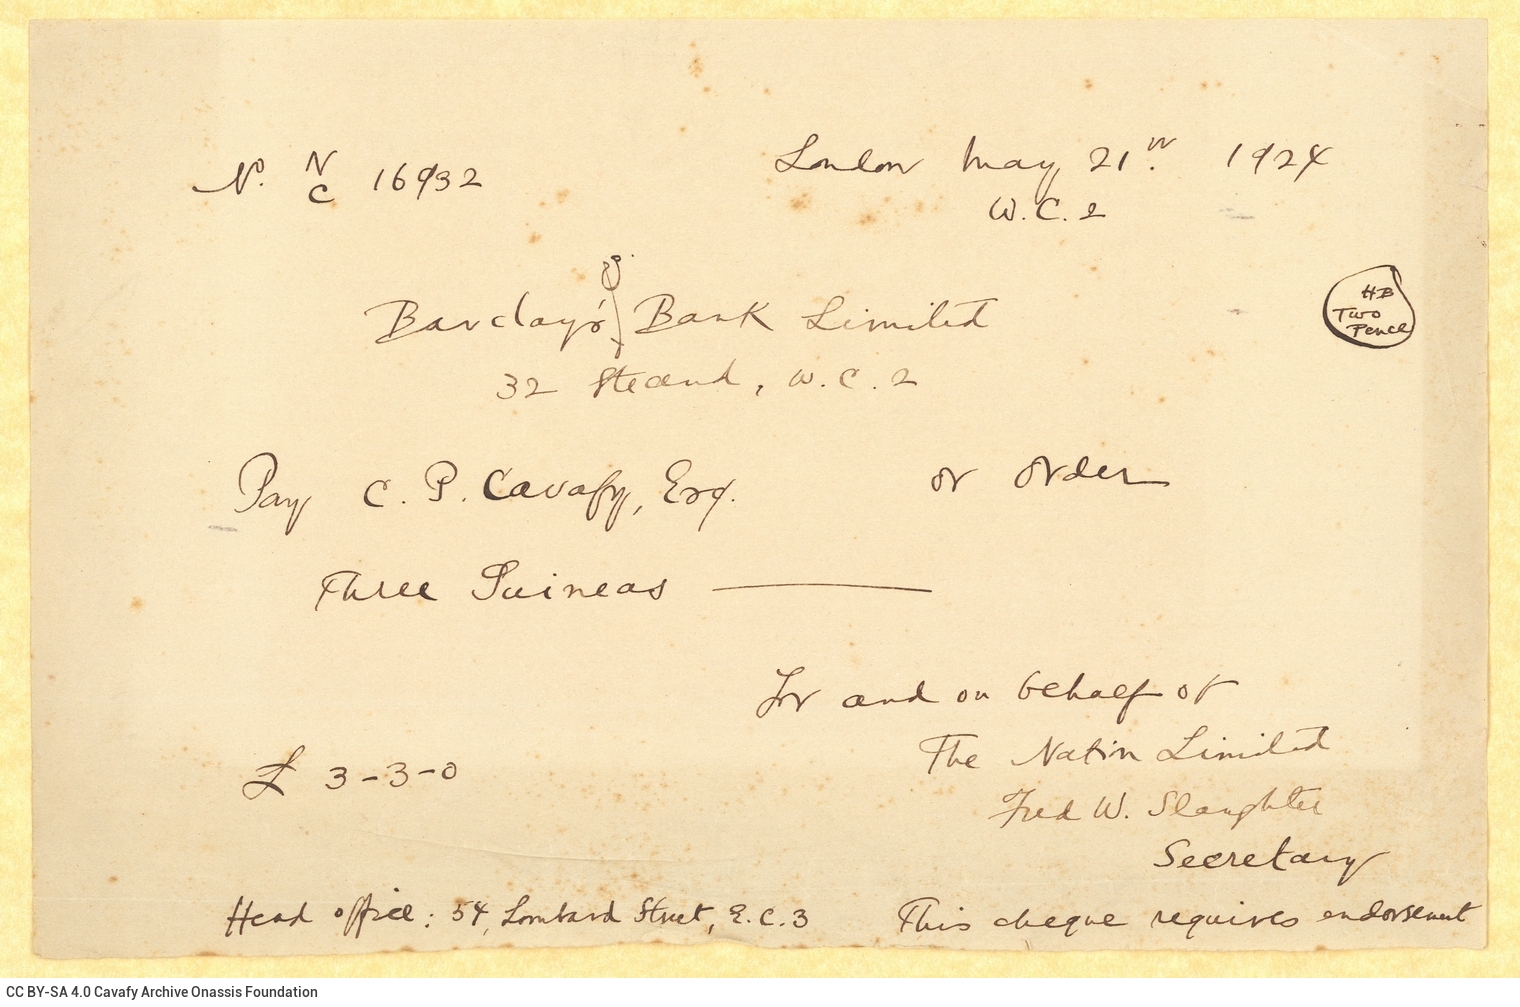 No. N/C 16932
London May 21st. 1924
W.C. 2
Barclay's Bank Limited
HB
Two
Pence
32 Strand, W.C.2
Pay C. P. Cavafy, Esq. or order
Three Guineas ———
For and on behalf of
The Nation Limited
£ 3-3-0
Fred W. Slaughter
Secretary
Head office: 54, Lombard Street, E.C.3 This cheque requires endorsement
CC BY-SA 4.0 Cavafy Archive Onassis Foundation